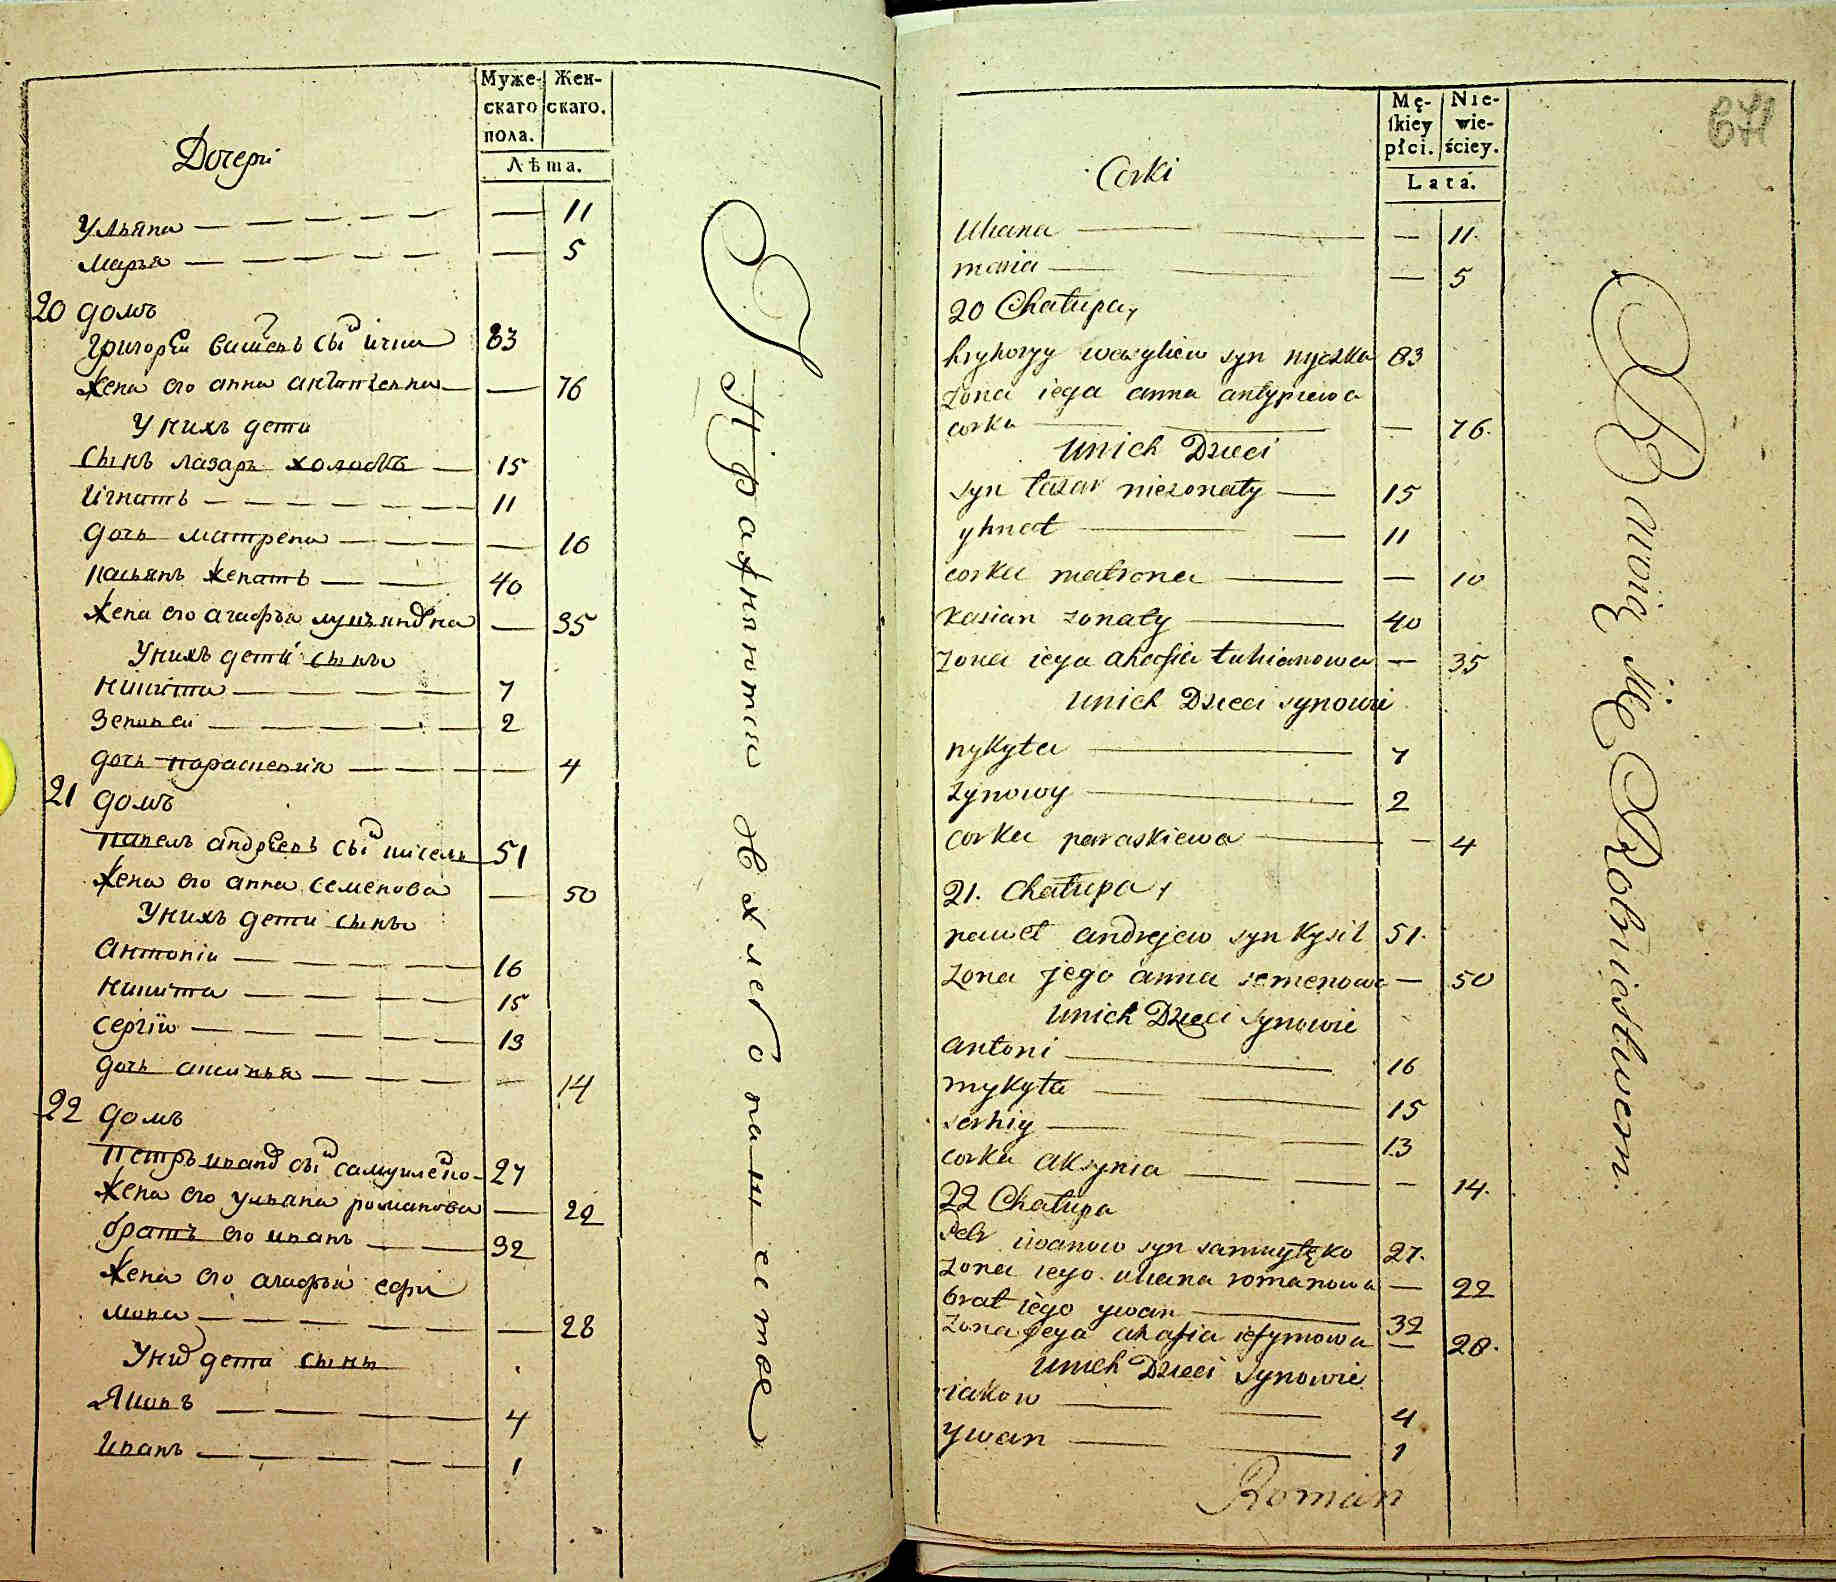 Муже-
скаго
пола.
Жен-
скаго.
Лѣта.
Дочери
Ульяна — 11
Марья — 5
20 домъ
Григорей сы 83
Жена его анна — 76
У нихъ дети
сынъ лазарь холостъ — 15
Игнатъ — 11
дочь матрена — 16
касьянъ женатъ — 40
Жена его агафья — 35
У нихъ дети сыны
никита — 7
Зеновей — 2
дочь — 4
21 домъ
павелъ андреевъ сы кисель 51
Жена его анна семенова — 50
У нихъ дети сыны
Антоній — 16
никита — 15
Сергій — 13
дочь аксинья — 14
22 домъ
Петръ сы 27
Жена его ульяна романова — 22
братъ его иванъ — 32
Жена его агафья ефи
мова — 28
дети сыны
Яковъ — 4
Иванъ — 1
Упражняются
Хлебопашество
671
Mę-
ſkiey
płci.
Nie-
wie-
ściey.
Lata.
Corki
Uliana — 11.
maria — 5
20 Chałupa,
hryhoryy wasyliew syn 83
żona iega anna antypiewa
corka — 76.
Unich Dzieci
syn łazar nieżonaty — 15
yhnat — 11
corka matrona — 10
Kasian żonaty — 40
żona iega ahafia łukianowa — 35
Unich Dzieci synowi
nykyta — 7
zynowy — 2
corka paraskiewa — 4
21. Chałupa,
paweł andrejew syn Kysil 51.
żona jego anna semenowa — 50
Unich Dzieci Synowie
antoni — 16
mykyta — 15
serhiy — 13
corka aksynia — 14.
22 Chałupa
Petr iwanow syn samuyłęko 27.
żona iego uliana romanowa — 22
brat iego ywan — 32
żona jega ahafia iefymowa — 28.
Unich Dzieci Synowie
iakow — 4
ywan — 1
Roman
Bawią się Rolnictwem.